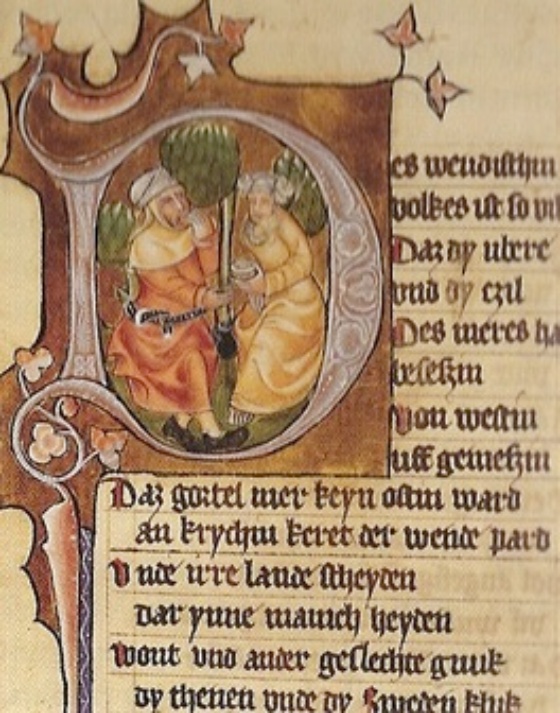 Des wendischin
volkes ist so vil
Daz dy ubere
vnd dy czil
Des meres ha
besessin
Von westin
uff gemessin
Daz gortel mer keyn ostin ward
an krychin keret der wende pard
Vnde irre lande scheyden
dar ynne manich heyden
wont vnd ander geslechte gnuk
dy thenen vnde dy Sweden kluk